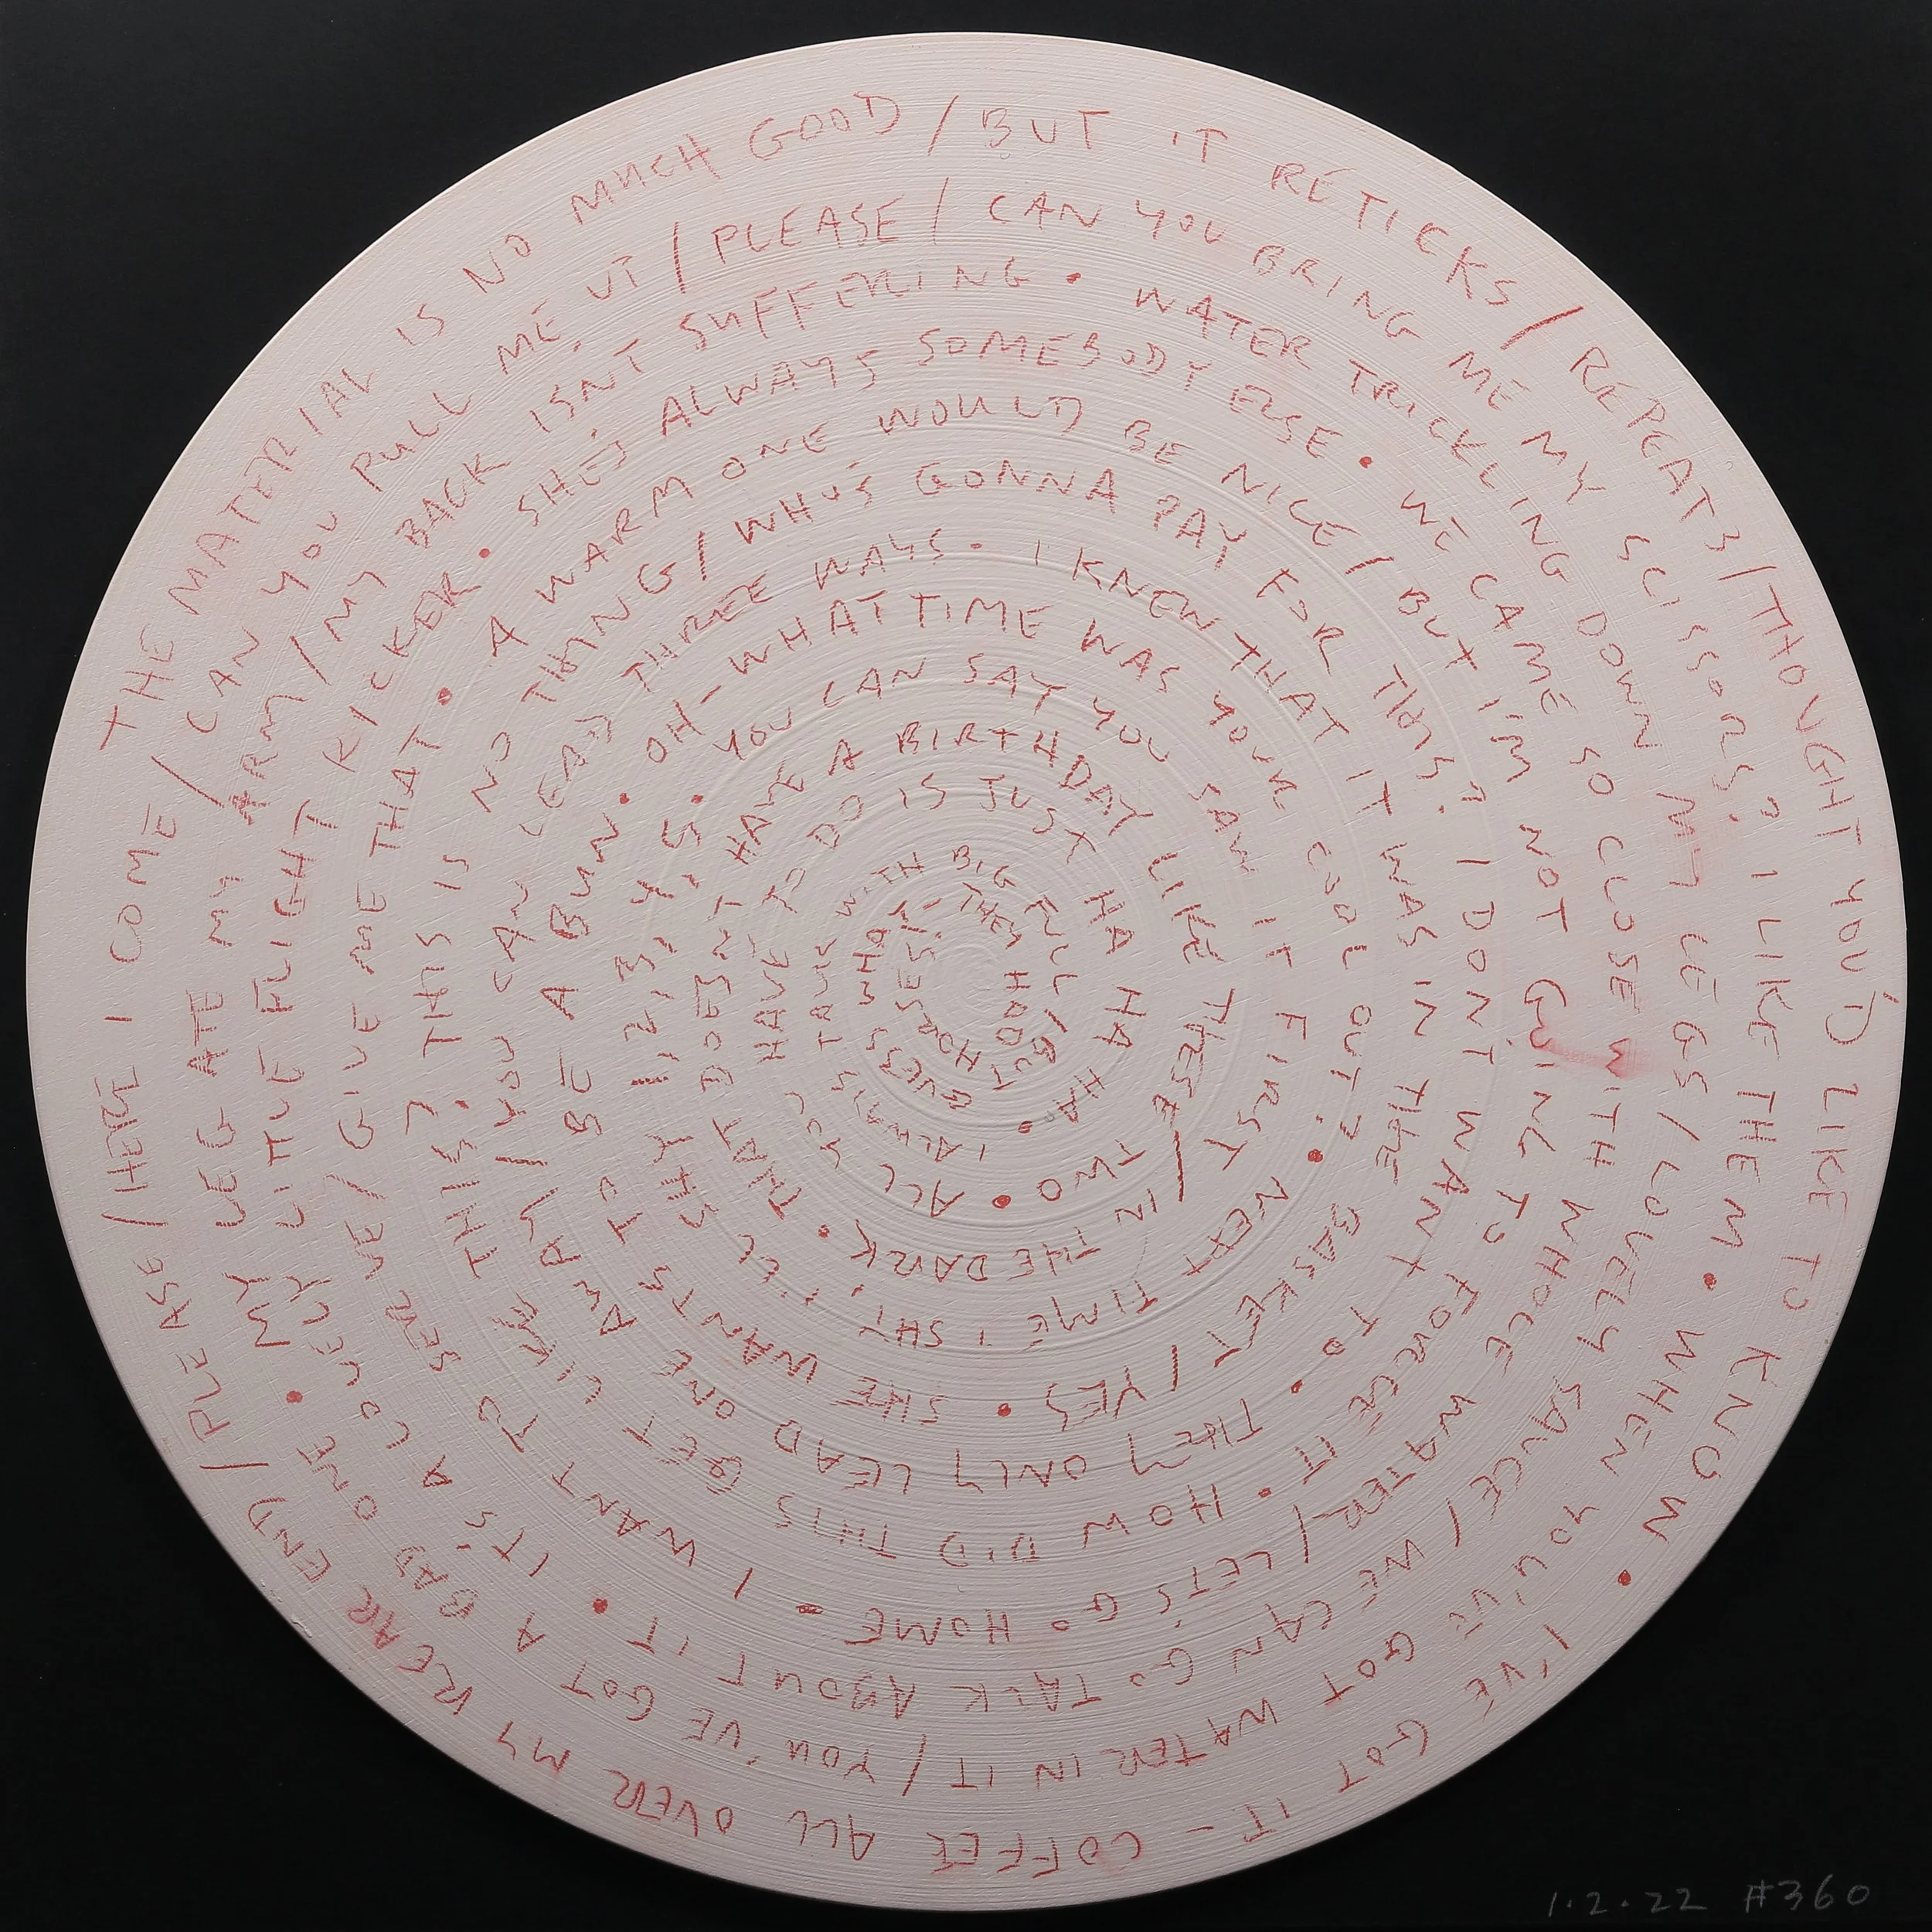 THE MATERIAL IS NO MUCH GOOD / BUT IT RETICKS / REPEATS / THOUGHT YOU'D LIKE TO KNOW •
I'VE GOT IT – COFFEE ALL OVER MY REAR END / PLEASE / HERE I COME / CAN YOU PULL ME UP / PLEASE / CAN YOU BRING ME MY SCISSORS? I LIKE THEM •
WHEN YOU'VE GOT WATER IN IT / YOU'VE GOT A BAD ONE •
MY LEG ATE MY ARM / MY BACK ISN'T SUFFERING •
WATER TRICKLING DOWN MY LEGS / LOVELY SAUCE / WE CAN GO TALK ABOUT IT •
IT'S A LOVELY LITTLE FLIGHT KICKER •
SHE'S ALWAYS SOMEBODY ELSE •
WE CAME SO CLOSE WITH WHOLE WATER / LET'S GO HOME •
I WANT TO SERVE / GIVE ME THAT •
A WARM ONE WOULD BE NICE / BUT I'M NOT GOING TO FORCE IT •
HOW DID THIS GET LIKE THIS? THIS IS NO THING / WHO'S GONNA PAY FOR THIS? I DON'T WANT TO •
THEY ONLY LEAD ONE WAY / YOU CAN LEAD THREE WAYS •
I KNEW THAT IT WAS IN THE BASKET / YES •
SHE WANTS TO BE A BUN •
OH – WHAT TIME WAS YOUR COOL OUT? •
NEXT TIME I SHY, I'LL SHY 1, 2, 3, 4, 5 •
YOU CAN SAY YOU SAW IT FIRST / IN THE DARK •
THAT DOESN'T HAVE A BIRTHDAY LIKE THESE TWO •
ALL YOU HAVE TO DO IS JUST HA HA HA HA •
I ALWAYS TALK WITH BIG FULL / BUT GUESS WHAT? THEY HORSES.
1.2.22 #360